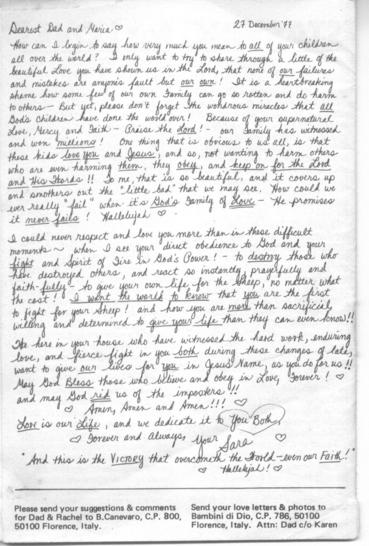 27 December '77
Dearest Dad and Maria ♡
How can I begin to say how very much you mean to all of your children
all over the world? I only want to try to share through a little of the
beautiful Love you have shown us in the Lord, that none of our failures
and mistakes are anyone's fault but our own! It is a heartbreaking
shame how some few of our own Family can go so rotten and do harm
to others — But yet, please don't forget the wondrous miracles that all
God's children have done the world over! Because of your supernatural
Love, Mercy and Faith — Praise the Lord! — our Family has witnessed
and won millions! One thing that is obvious to us all, is that
these kids love you and Jesus, and so, not wanting to harm others
who are even harming them, they obey, and keep on for the Lord
and His Words!! To me that is so beautiful, and it covers up
and smothers out the "little bad" that we may see. How could we
ever really "fail" when it's God's Family of Love — He promises
it never fails! Hallelujah ♡
I could never respect and love you more than in these difficult
moments — when I see your direct obedience to God and your
fight and Spirit of Fire in God's Power! — to destroy those who
have destroyed others, and react so instantly, prayerfully and
faith-fully — to give your own life for the sheep, no matter what
the cost! I want the world to know that you are the first
to fight for your sheep! and how you are more than sacrificial,
willing and determined to give your life than they can even know!!
We here in your house who have witnessed the hard work, enduring
love, and fierce fight in you both during these changes of late,
want to give our lives for you in Jesus Name, as you do for us!!
May God Bless those who believe and obey in Love, Forever! ♡
and may God rid us of the imposters!!
♡ Amen, Amen and Amen!!! ♡
Love is our Life, and we dedicate it to You Both!
♡ Forever and Always, Your Sara ♡
"And this is the VICTORY that overcometh the World — even our Faith!"
♡ Hallelujah! ♡
Please send your suggestions & comments
for Dad & Rachel to B.Canevaro, C.P. 800,
50100 Florence, Italy.
Send your love letters & photos to
Bambini di Dio, C.P. 786, 50100
Florence, Italy. Attn: Dad c/o Karen